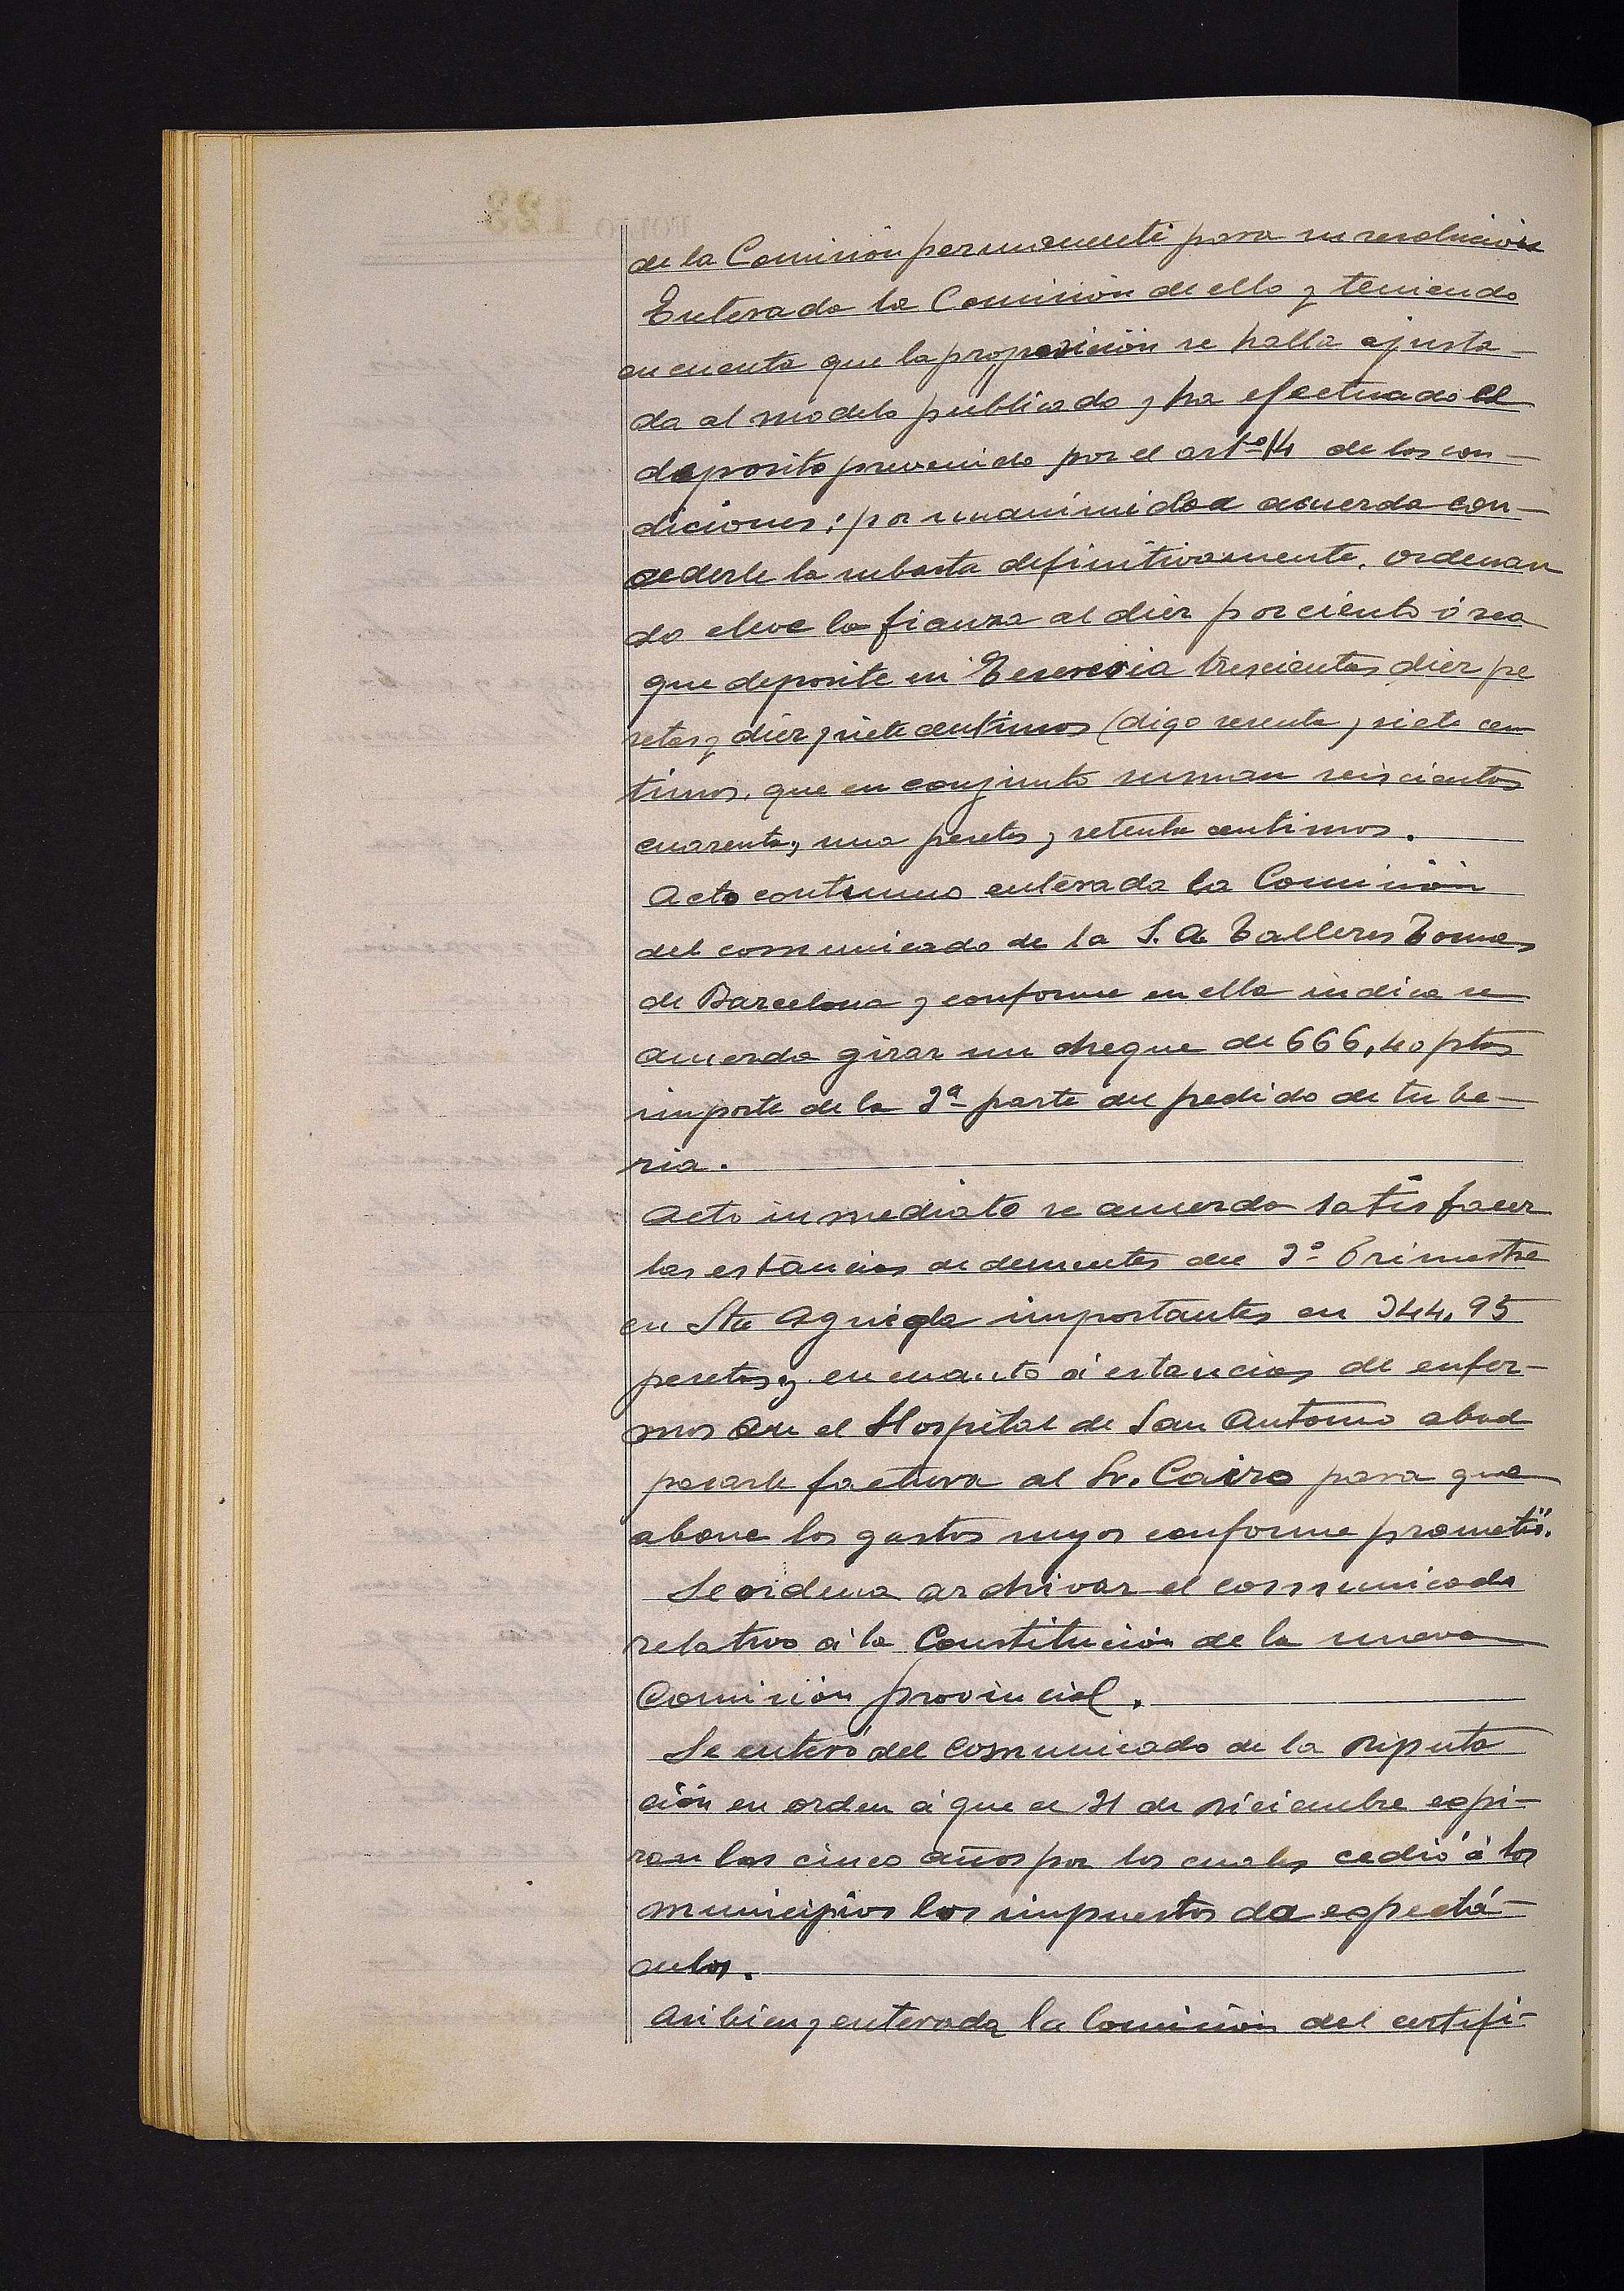 de la Comisión permanente para su resolución
Enterada la Comisión de ello y teniendo
en cuenta que la proposición se halla ajusta-
da al modelo publicado y ha efectuado el
deposito prevenido por el artº 14 de los con-
diciones; por unanimidad acuerda con-
cederle la subasta definitivamente. ordenan
do eleve la fianza al diez por ciento ó sea
que deposite en Tesoreria trescientas diez pe
setas y diez y siete centimos (digo sesenta y siete cen
timos, que en conjunto suman seiscientas
cuarenta y una pesetas y setenta centimos.
Acto continuo enterada la Comisión
del comunicado de la S. A. Talleres Tomas
de Barcelona y conforme en ella indica se
acuerda girar un cheque de 666,40 ptas
importe de la 2ª parte del pedido de tube-
ria.
Acto inmediato se acuerda satisfacer
las estancias de dementes del 2º Trimestre
en Sta Agueda importantes en 344,95
pesetas y en cuanto á estancias de enfer-
mos en el Hospital de San Antonio abad
pasarle factura al Sr. Cairo para que
abone los gastos suyos conforme prometió.
Se ordena archivar el comunicado
relativo á la Constitución de la nueva
Comisión provincial.
Se enteró del comunicado de la Diputa
ción en orden á que el 31 de Diciembre expi-
ran los cinco años por los cuales cedió á los
municipios los impuestos de espectá-
culos.
Asi bien y enterada la Comisión del certifi-